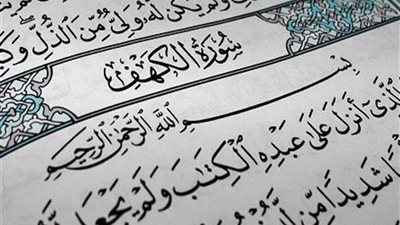 وَلَمْ يَكُن لَّهُ وَلِىٌّ مِّنَ ٱلذُّلِّ وَكَ
سُورَةُ الكَهْفِ
بِسْمِ ٱللَّهِ ٱلرَّحْمَٰنِ ٱلرَّحِيمِ
ٱلَّذِىٓ أَنزَلَ عَلَىٰ عَبْدِهِ ٱلْكِتَٰبَ وَلَمْ يَجْعَل لَّهُ
شَدِيدًا مِّن